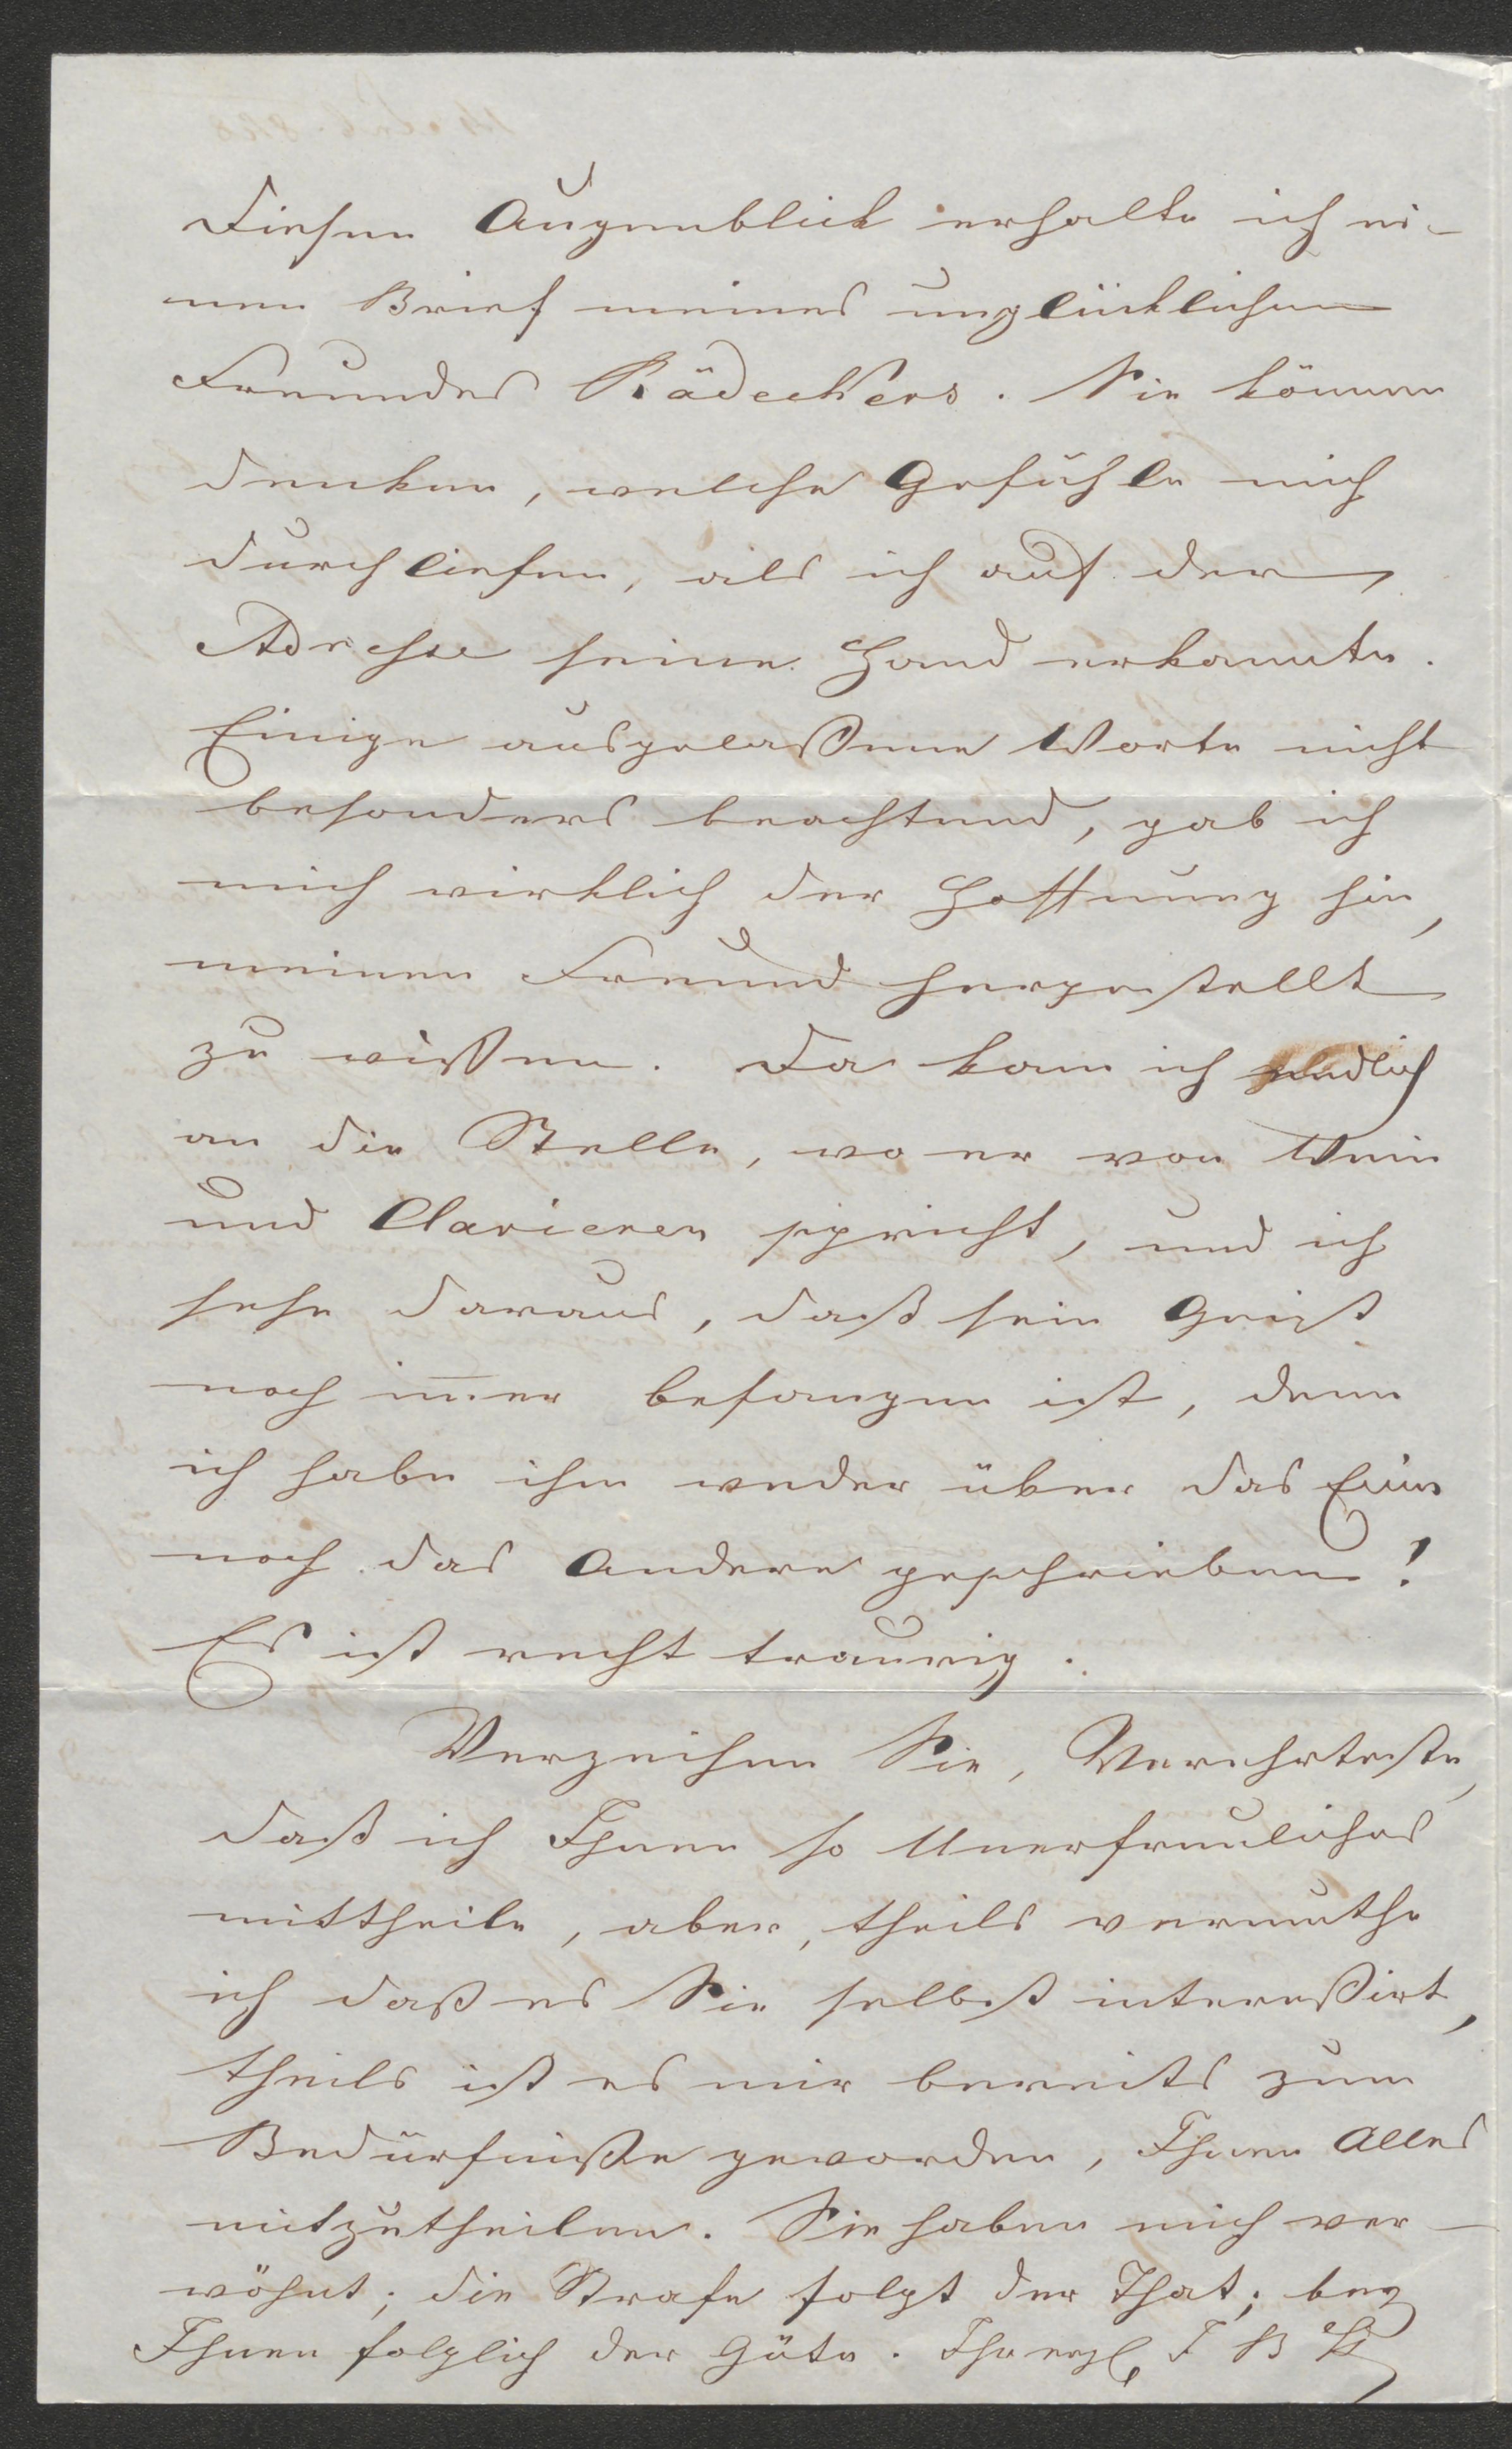 Diesen Augenblick erhalte ich ei-
nen Brief meines unglücklichen
Freundes Rädeckers. Sie können
denken, welche Gefühle mich
durchliefen, als ich auf der
Adresse seine Hand erkannte.
Einige ausgelaßene Worte nicht
besonders beachtend, gab ich
mich wirklich der Hoffnung hin,
meinen Freund hergestellt
zu wißen. Da kam ich endlich
an die Stelle, wo er von Wein
und Clavieren spricht, und ich
sehe daraus, daß sein Geist
noch im̅er befangen ist, denn
ich habe ihm weder über das Eine
noch das Andere geschrieben!
Es ist recht traurig.
Verzeihen Sie, Verehrteste,
daß ich Ihnen so Unerfreuliches
mittheile, aber, theils vermuthe
ich daß es Sie selbst intereßirt,
theils ist es mir bereits zum
Bedürfniße geworden, Ihnen Alles
mitzutheilen. Sie haben mich ver-
wöhnt; die Strafe folgt der That; bey
Ihnen folglich der Güte. Ihr